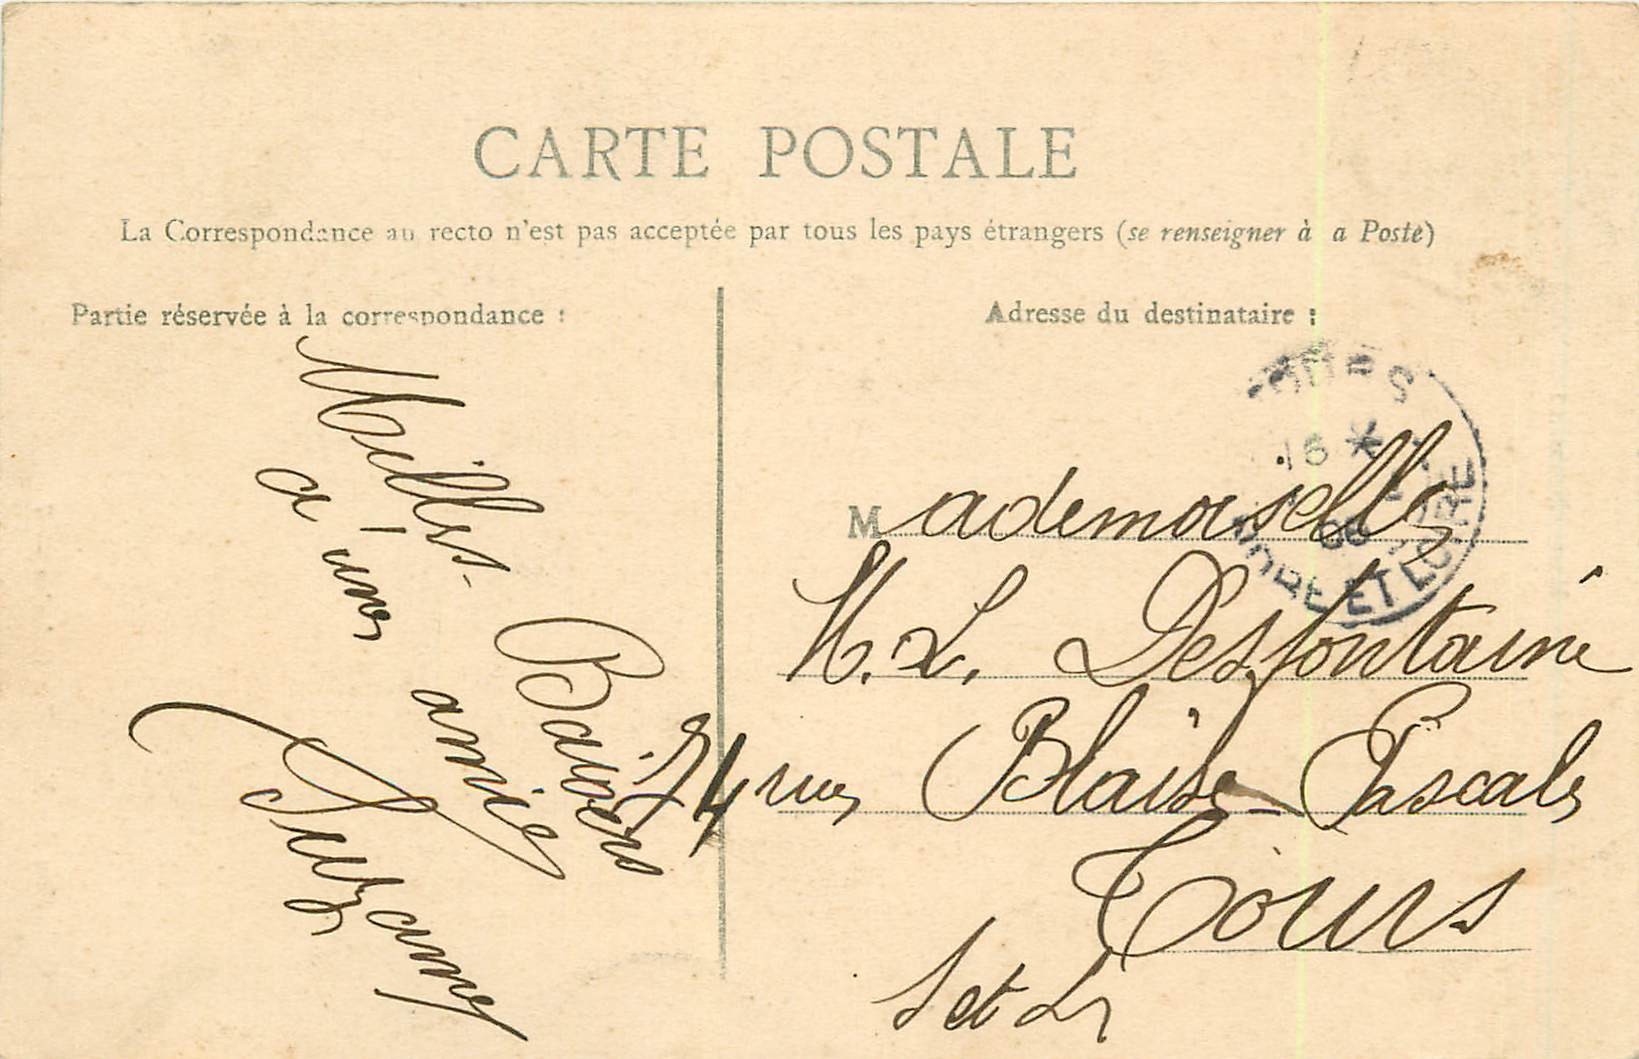 CARTE POSTALE
La Correspondance au recto n'est pas acceptée par tous les pays étrangers (se renseigner à a Poste)
Partie réservée à la correspondance :
Milles Baisers
à une amie
Suzanne
Adresse du destinataire :
TOURS
16 *
06
INDRE ET LOIRE
Mademoiselle
M. L. Desfontaine
74 rue Blaise Pascale
Tours
I et L